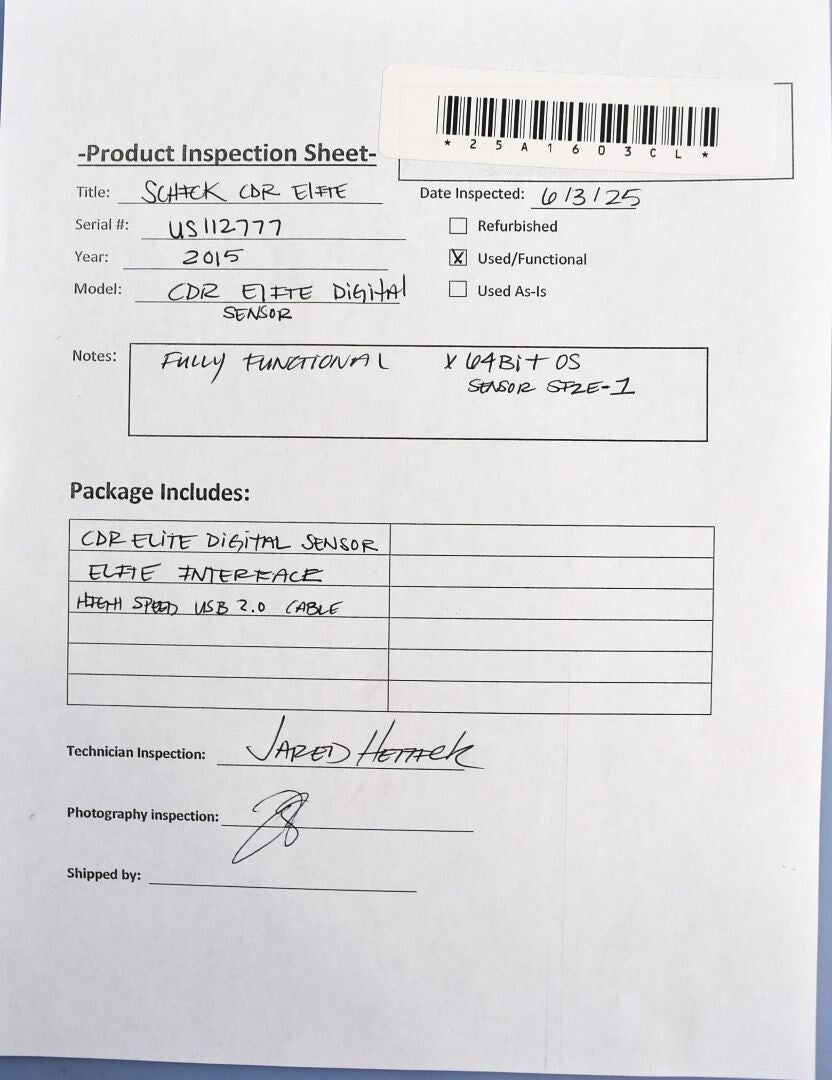 *25A1603CL*
-Product Inspection Sheet-
Title: SCHICK CDR ELITE
Date Inspected: 6/3/25
Serial #: US112777
Refurbished
Year: 2015
X Used/Functional
Model: CDR ELITE DIGITAL
SENSOR
Used As-Is
Notes: FULLY FUNCTIONAL X 64BIT OS
SENSOR SIZE-1
Package Includes:
CDR ELITE DIGITAL SENSOR
ELITE INTERFACE
HIGH SPEED USB 2.0 CABLE
Technician Inspection: JARED
Photography inspection:
Shipped by: